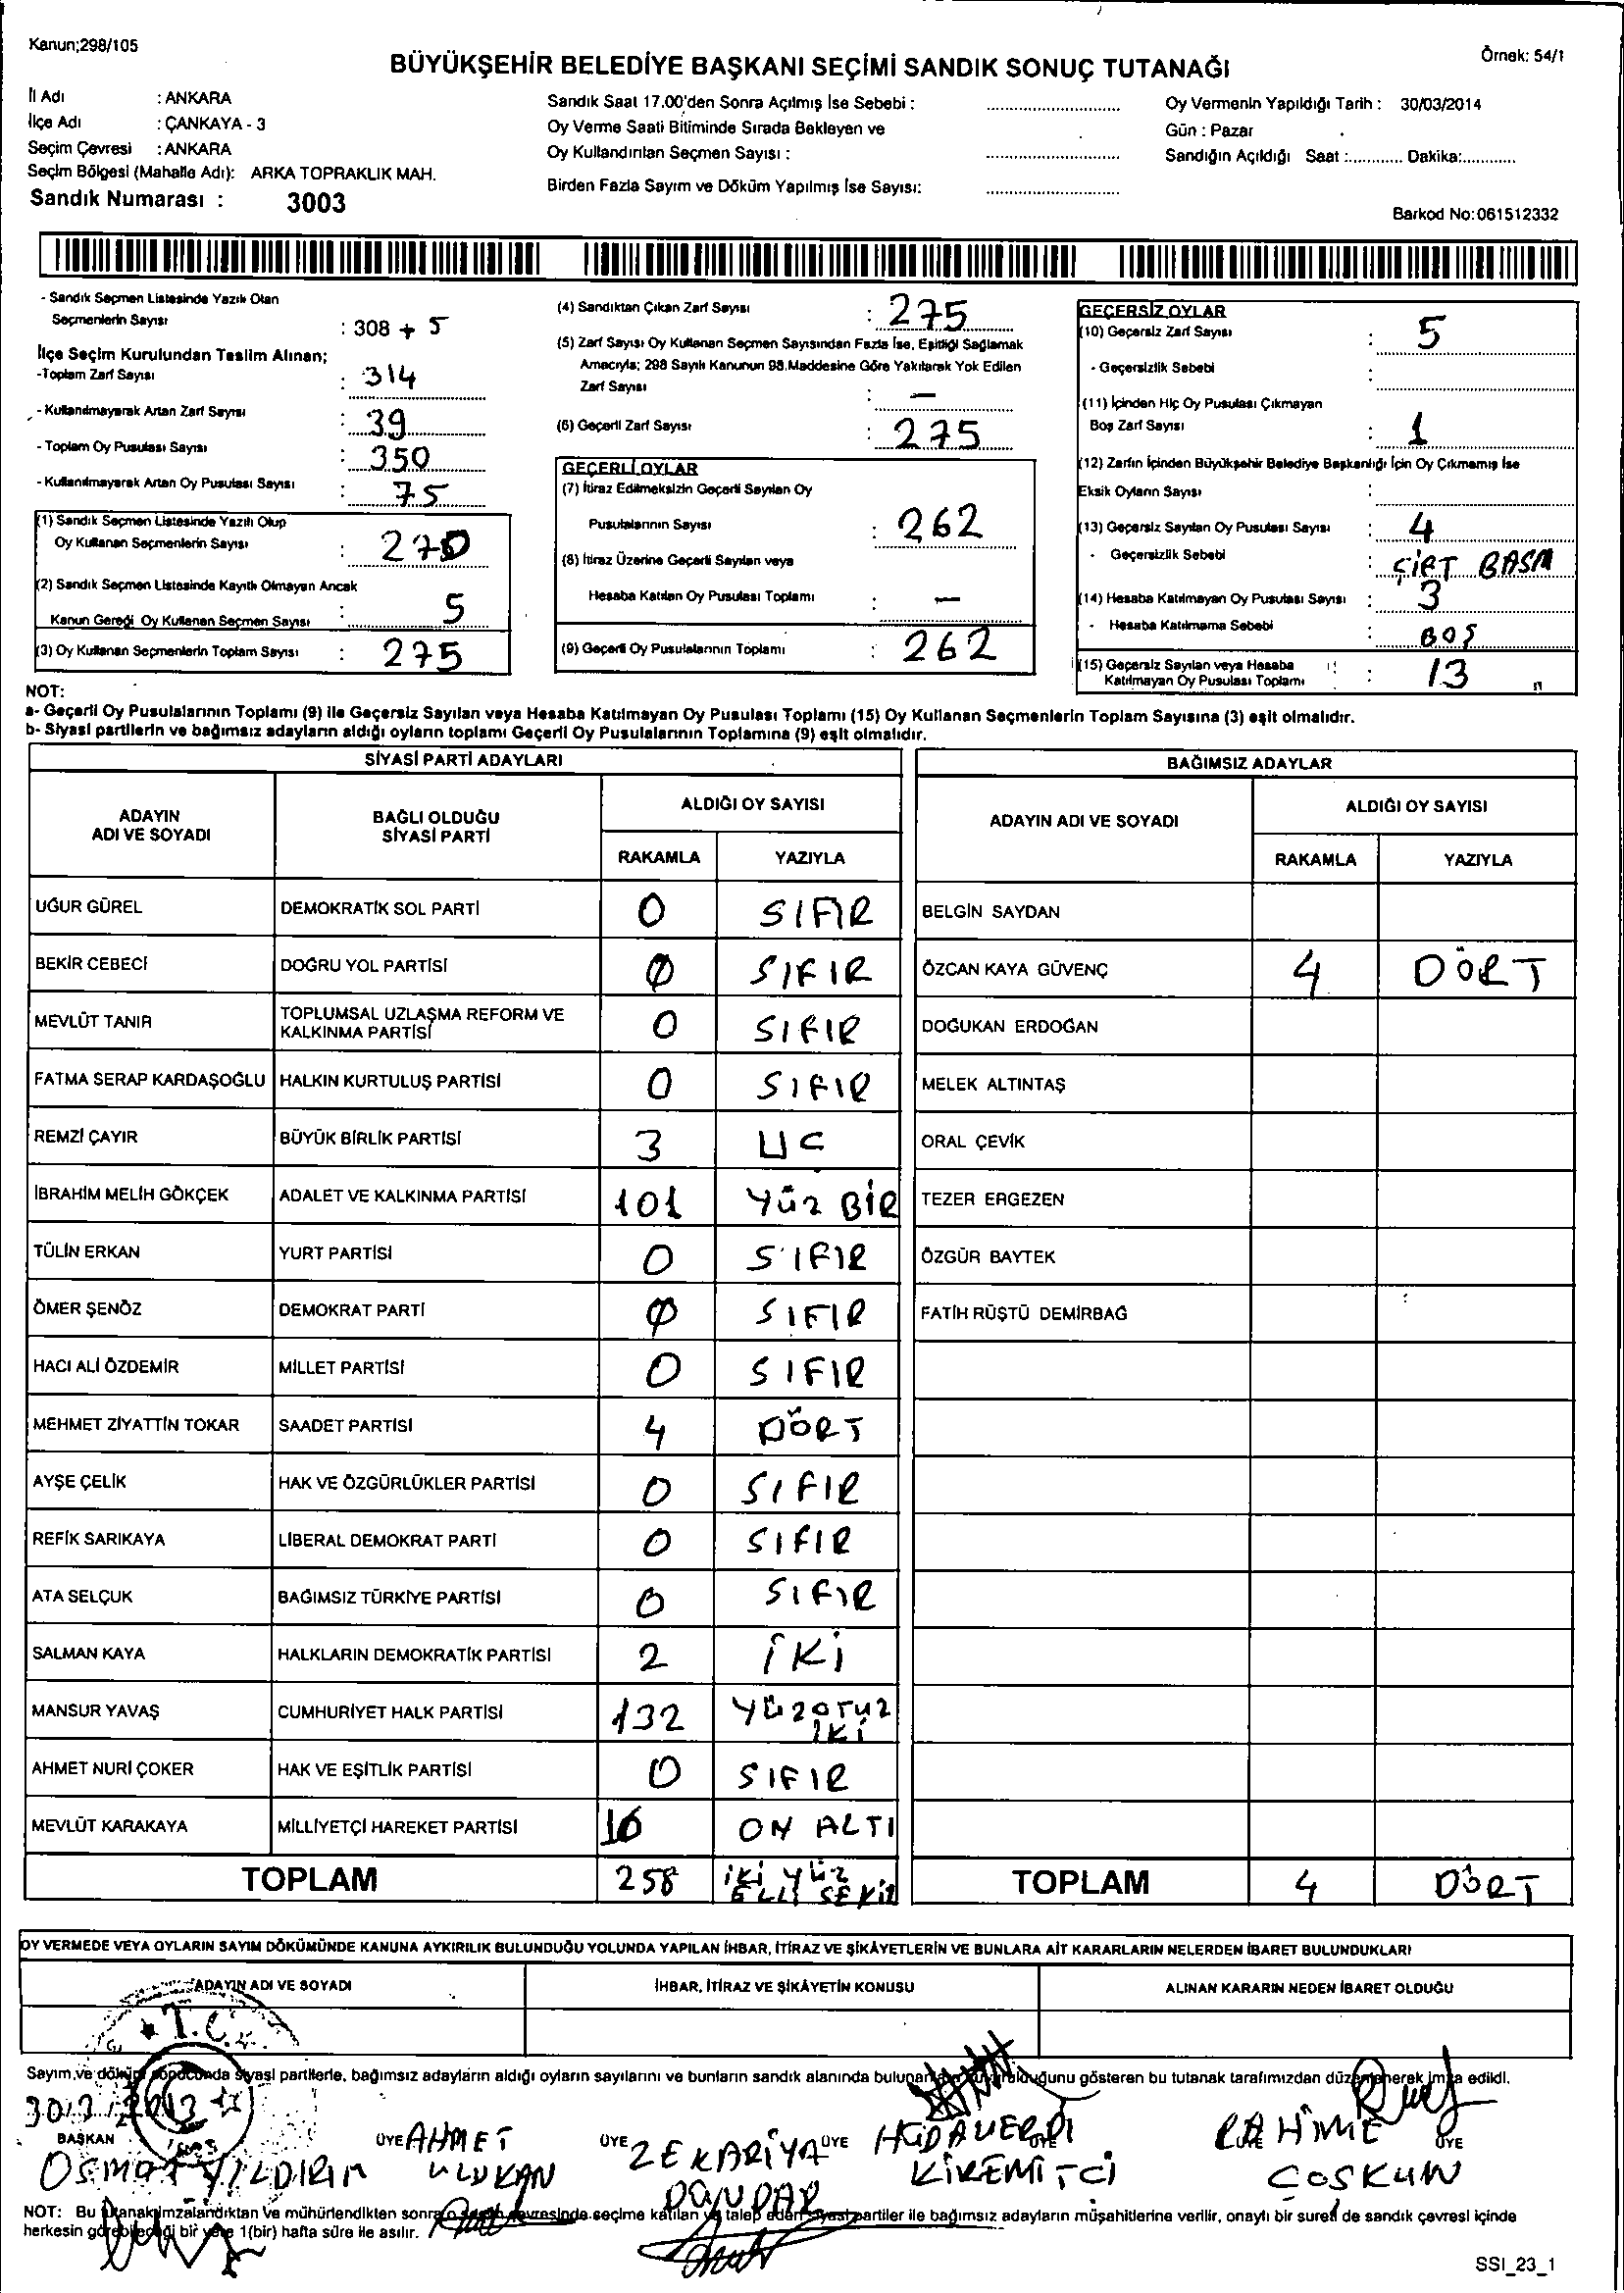 Kanun;298/105
Örnek: 54/1
BÜYÜKŞEHİR BELEDİYE BAŞKANI SEÇİMİ SANDIK SONUÇ TUTANAĞI
İl Adı : ANKARA
İlçe Adı : ÇANKAYA - 3
Seçim Çevresi : ANKARA
Seçim Bölgesi (Mahalle Adı): ARKA TOPRAKLIK MAH.
Sandık Numarası : 3003
Sandık Saat 17.00'den Sonra Açılmış İse Sebebi :
Oy Verme Saati Bitiminde Sırada Bekleyen ve
Oy Kullandırılan Seçmen Sayısı :
Birden Fazla Sayım ve Döküm Yapılmış İse Sayısı:
Oy Vermenin Yapıldığı Tarih : 30/03/2014
Gün : Pazar
Sandığın Açıldığı Saat :............ Dakika:............
Barkod No:061512332
- Sandık Seçmen Listesinde Yazılı Olan
Seçmenlerin Sayısı : 308 + 5
İlçe Seçim Kurulundan Teslim Alınan;
-Toplam Zarf Sayısı : 314
- Kullanılmayarak Artan Zarf Sayısı : 39
- Toplam Oy Pusulası Sayısı : 350
- Kullanılmayarak Artan Oy Pusulası Sayısı : 75
(1) Sandık Seçmen Listesinde Yazılı Olup
Oy Kullanan Seçmenlerin Sayısı : 270
(2) Sandık Seçmen Listesinde Kayıtlı Olmayan Ancak
Kanun Gereği Oy Kullanan Seçmen Sayısı : 5
(3) Oy Kullanan Seçmenlerin Toplam Sayısı : 275
(4) Sandıktan Çıkan Zarf Sayısı : 275
(5) Zarf Sayısı Oy Kullanan Seçmen Sayısından Fazla İse, Eşitliği Sağlamak
Amacıyla; 298 Sayılı Kanunun 98.Maddesine Göre Yakılarak Yok Edilen
Zarf Sayısı : —
(6) Geçerli Zarf Sayısı : 275
GEÇERLİ OYLAR
(7) İtiraz Edilmeksizin Geçerli Sayılan Oy
Pusulalarının Sayısı : 262
(8) İtiraz Üzerine Geçerli Sayılan veya
Hesaba Katılan Oy Pusulası Toplamı : —
(9) Geçerli Oy Pusulalarının Toplamı : 262
GEÇERSİZ OYLAR
(10) Geçersiz Zarf Sayısı : 5
- Geçersizlik Sebebi :
(11) İçinden Hiç Oy Pusulası Çıkmayan
Boş Zarf Sayısı : 1
(12) Zarfın İçinden Büyükşehir Belediye Başkanlığı İçin Oy Çıkmamış İse
Eksik Oyların Sayısı :
(13) Geçersiz Sayılan Oy Pusulası Sayısı : 4
- Geçersizlik Sebebi : ÇİFT BASM
(14) Hesaba Katılmayan Oy Pusulası Sayısı : 3
- Hesaba Katılmama Sebebi : BOŞ
(15) Geçersiz Sayılan veya Hesaba
Katılmayan Oy Pusulası Toplamı : 13
NOT:
a- Geçerli Oy Pusulalarının Toplamı (9) ile Geçersiz Sayılan veya Hesaba Katılmayan Oy Pusulası Toplamı (15) Oy Kullanan Seçmenlerin Toplam Sayısına (3) eşit olmalıdır.
b- Siyasi partilerin ve bağımsız adayların aldığı oyların toplamı Geçerli Oy Pusulalarının Toplamına (9) eşit olmalıdır.
SİYASİ PARTİ ADAYLARI
ADAYIN ADI VE SOYADI
BAĞLI OLDUĞU SİYASİ PARTİ
ALDIĞI OY SAYISI
RAKAMLA YAZIYLA
UĞUR GÜREL DEMOKRATİK SOL PARTİ 0 SIFIR
BEKİR CEBECİ DOĞRU YOL PARTİSİ 0 SIFIR
MEVLÜT TANIR TOPLUMSAL UZLAŞMA REFORM VE KALKINMA PARTİSİ 0 SIFIR
FATMA SERAP KARDAŞOĞLU HALKIN KURTULUŞ PARTİSİ 0 SIFIR
REMZİ ÇAYIR BÜYÜK BİRLİK PARTİSİ 3 UC
İBRAHİM MELİH GÖKÇEK ADALET VE KALKINMA PARTİSİ 101 YÜZ BİR
TÜLİN ERKAN YURT PARTİSİ 0 SIFIR
ÖMER ŞENÖZ DEMOKRAT PARTİ 0 SIFIR
HACI ALİ ÖZDEMİR MİLLET PARTİSİ 0 SIFIR
MEHMET ZİYATTİN TOKAR SAADET PARTİSİ 4 DÖRT
AYŞE ÇELİK HAK VE ÖZGÜRLÜKLER PARTİSİ 0 SIFIR
REFİK SARIKAYA LİBERAL DEMOKRAT PARTİ 0 SIFIR
ATA SELÇUK BAĞIMSIZ TÜRKİYE PARTİSİ 0 SIFIR
SALMAN KAYA HALKLARIN DEMOKRATİK PARTİSİ 2 İKİ
MANSUR YAVAŞ CUMHURİYET HALK PARTİSİ 132 YÜZOTUZ İKİ
AHMET NURİ ÇOKER HAK VE EŞİTLİK PARTİSİ 0 SIFIR
MEVLÜT KARAKAYA MİLLİYETÇİ HAREKET PARTİSİ 16 ON ALTI
TOPLAM 258 İKİ YÜZ ELLİ SEKİZ
BAĞIMSIZ ADAYLAR
ADAYIN ADI VE SOYADI
ALDIĞI OY SAYISI
RAKAMLA YAZIYLA
BELGİN SAYDAN
ÖZCAN KAYA GÜVENÇ 4 DÖRT
DOĞUKAN ERDOĞAN
MELEK ALTINTAŞ
ORAL ÇEVİK
TEZER ERGEZEN
ÖZGÜR BAYTEK
FATİH RÜŞTÜ DEMİRBAĞ
TOPLAM 4 DÖRT
OY VERMEDE VEYA OYLARIN SAYIM DÖKÜMÜNDE KANUNA AYKIRILIK BULUNDUĞU YOLUNDA YAPILAN İHBAR, İTİRAZ VE ŞİKÂYETLERİN VE BUNLARA AİT KARARLARIN NELERDEN İBARET BULUNDUKLARI
ADAYIN ADI VE SOYADI
İHBAR, İTİRAZ VE ŞİKÂYETİN KONUSU
ALINAN KARARIN NEDEN İBARET OLDUĞU
T.C.
Sayım ve döküm sonucunda siyasi partilerle, bağımsız adayların aldığı oyların sayılarını ve bunların sandık alanında bulunan olduğunu gösteren bu tutanak tarafımızdan düzenlenerek imza edildi.
BAŞKAN ÜYE ÜYE ÜYE ÜYE ÜYE
OSMAN YILDIRIM
AHMET ULUKAN
ZEKARİYA
HÜDAVERDİ KİREMİTCİ
RAHİME COSKUN
NOT: Bu tutanak imzalandıktan ve mühürlendikten sonra çevresinde seçime katılan ve talep eden siyasi partiler ile bağımsız adayların müşahitlerine verilir, onaylı bir sureti de sandık çevresi içinde
herkesin görebileceği bir yere 1(bir) hafta süre ile asılır.
SSI_23_1